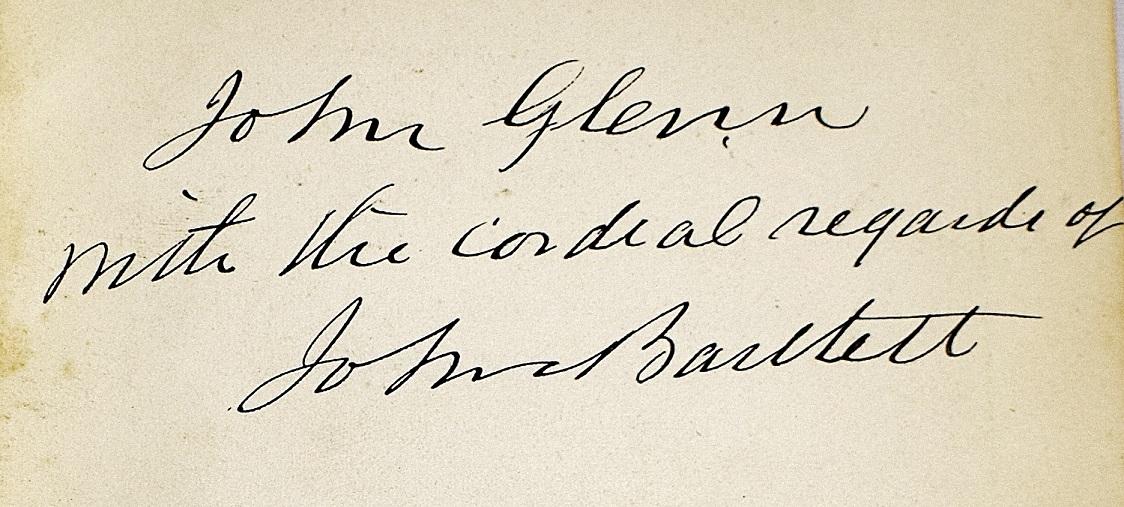 John Glenn
with the cordial regards of
John Bartlett